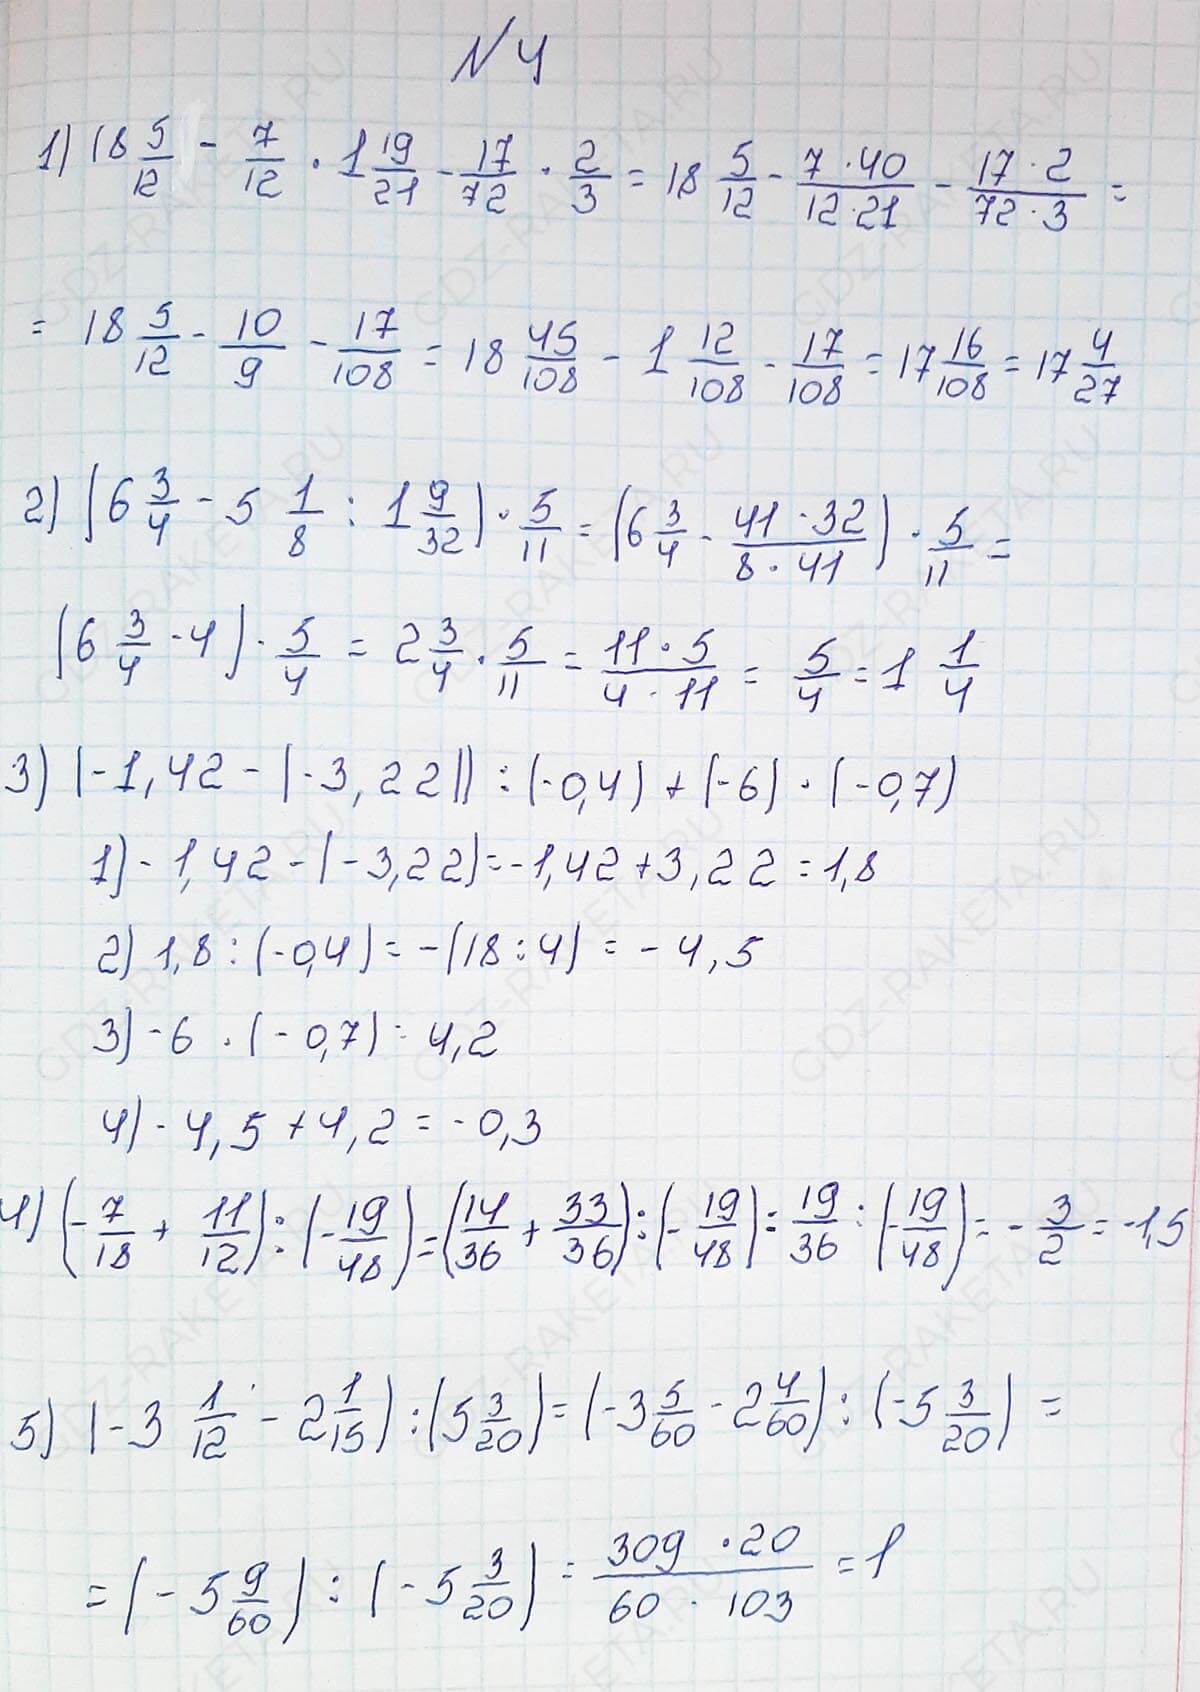 N 4
1) 18 5/12 - 7/12 · 1 19/21 - 17/72 · 2/3 = 18 5/12 - 7·40/12·21 - 17·2/72·3 =
= 18 5/12 - 10/9 - 17/108 = 18 45/108 - 1 12/108 - 17/108 = 17 16/108 = 17 4/27
2) (6 3/4 - 5 1/8 : 1 9/32) · 5/11 = (6 3/4 - 41·32/8·41) · 5/11 =
(6 3/4 - 4) · 5/4 = 2 3/4 · 5/11 = 11·5/4·11 = 5/4 = 1 1/4
3) (-1,42 - (-3,22)) : (-0,4) + (-6) · (-0,7)
1) -1,42 - (-3,22) = -1,42 + 3,22 = 1,8
2) 1,8 : (-0,4) = -(18:4) = -4,5
3) -6 · (-0,7) = 4,2
4) -4,5 + 4,2 = -0,3
4) (-7/18 + 11/12) : (-19/48) = (14/36 + 33/36) : (-19/48) = 19/36 : (-19/48) = -3/2 = -1,5
5) (-3 1/12 - 2 1/15) : (5 3/20) = (-3 5/60 - 2 4/60) : (-5 3/20) =
= (-5 9/60) : (-5 3/20) = 309·20/60·103 = 1
GDZ-RAKETA.RU